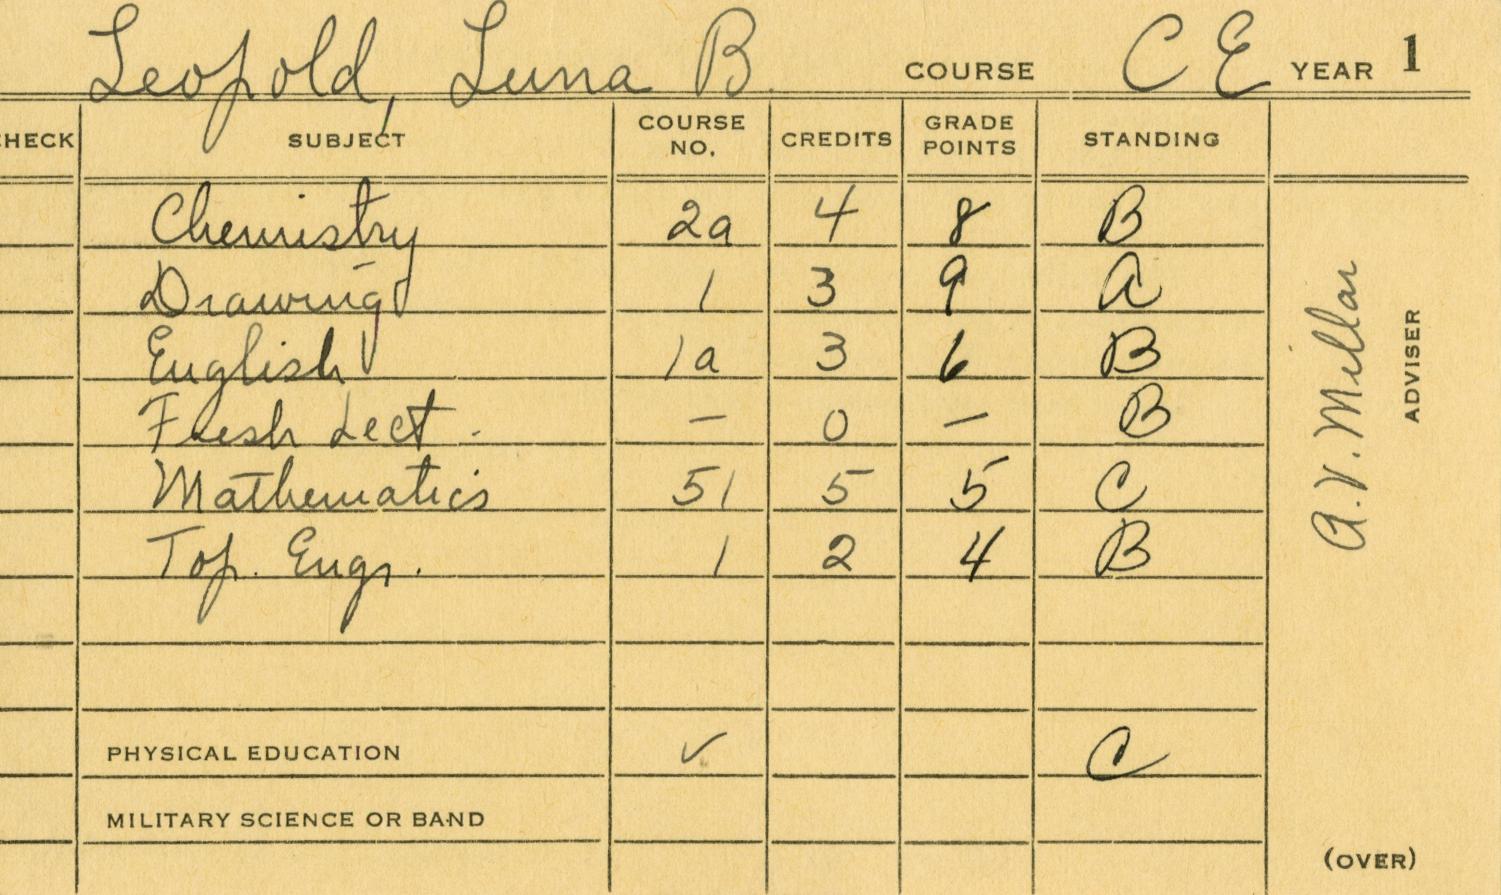 Leopold, Luna B. COURSE C E YEAR 1
CHECK SUBJECT COURSE NO. CREDITS GRADE POINTS STANDING
Chemistry 2a 4 8 B
Drawing 1 3 9 A
English 1a 3 6 B
Fresh Lect. - 0 - B
Mathematics 51 5 5 C
Top. Engr. 1 2 4 B
PHYSICAL EDUCATION ✓ C
MILITARY SCIENCE OR BAND
A.V. Millar
ADVISER
(OVER)